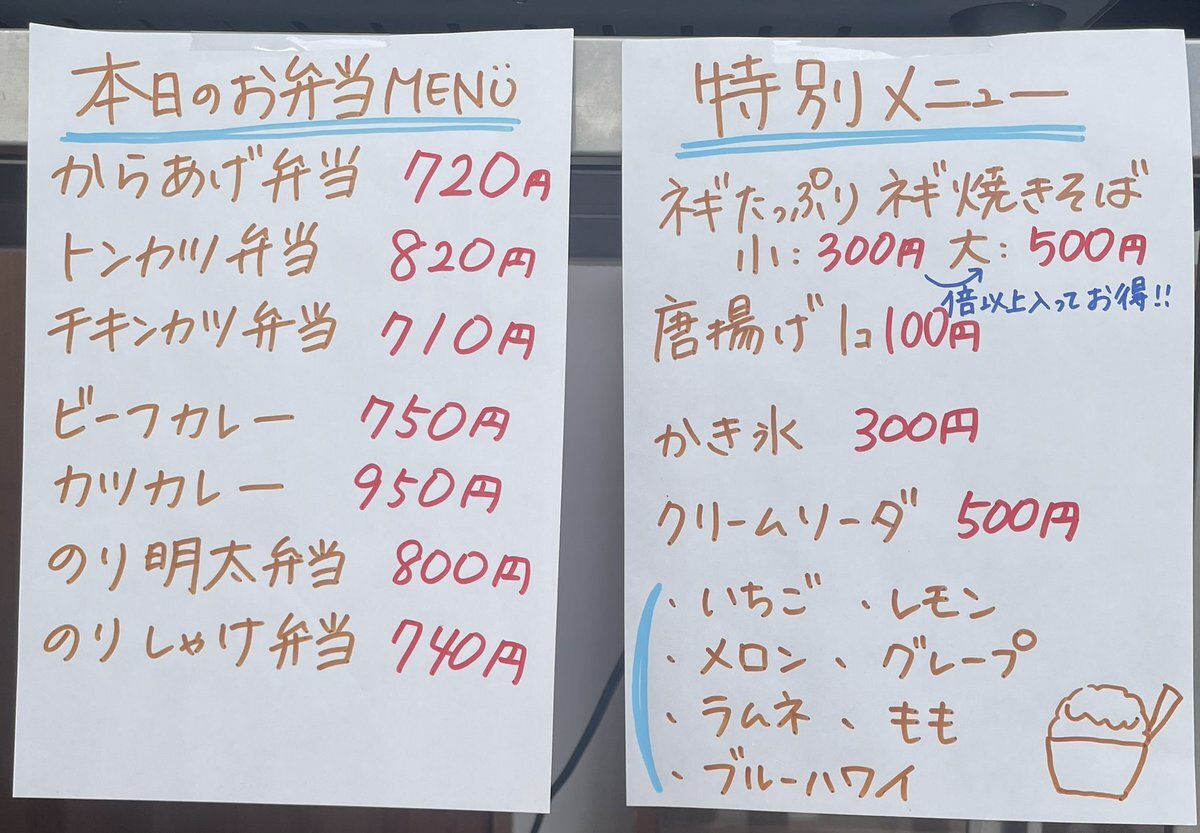 本日のお弁当MENÜ
からあげ弁当 720円
トンカツ弁当 820円
チキンカツ弁当 710円
ビーフカレー 750円
カツカレー 950円
のり明太弁当 800円
のりしゃけ弁当 740円
特別メニュー
ネギたっぷりネギ焼きそば
小:300円 大:500円
倍以上入ってお得!!
唐揚げ 1コ100円
かき氷 300円
クリームソーダ 500円
・いちご ・レモン
・メロン 、グレープ
・ラムネ 、もも
・ブルーハワイ